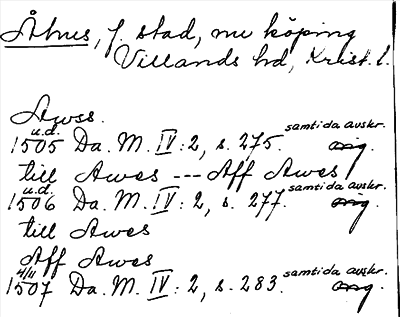 Åhus, f. stad, nu köping
Villands hd, Krist. l.
Awss.
u.d. samtida avskr.
1505 Da. M. IV: 2, s. 275. orig.
till Awes --- Aff Awes
u.d. samtida avskr.
1506 Da. M. IV: 2, s. 277. orig.
till Awes
Aff Awes
4/11 samtida avskr.
1507 Da. M. IV: 2, s. 283. orig.